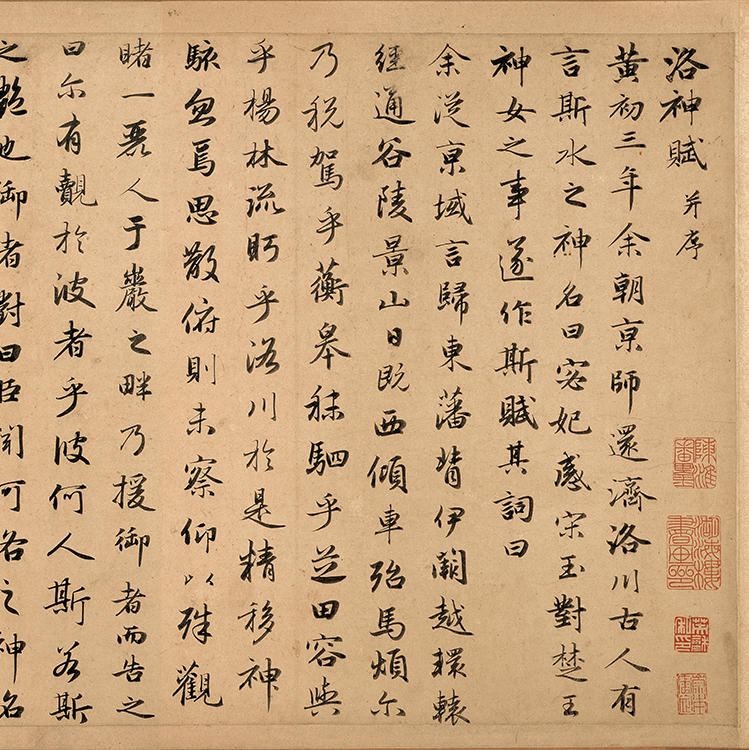 洛神賦 并序
黃初三年余朝京師還濟洛川古人有
言斯水之神名曰宓妃感宋玉對楚王
神女之事遂作斯賦其詞曰
余從京域言歸東藩背伊闕越轘轅
經通谷陵景山日既西傾車殆馬煩尒
乃稅駕乎蘅皋秣駟乎芝田容與
乎楊林流眄乎洛川於是精移神
駭忽焉思散俯則未察仰以殊觀
睹一麗人于巖之畔乃援御者而告之
曰尒有覿於波者乎彼何人斯若斯
之艷也御者對曰臣聞河洛之神名
陳淮